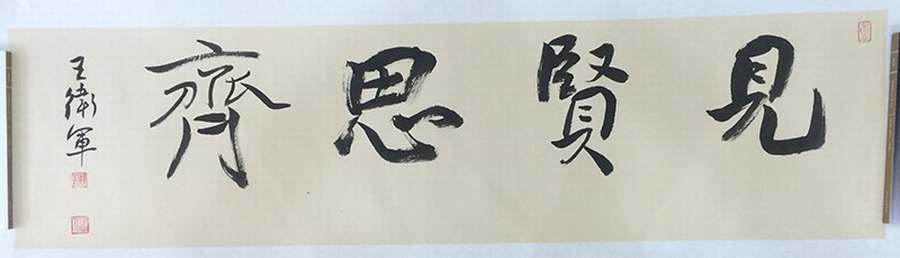 見賢思齊
王衛軍